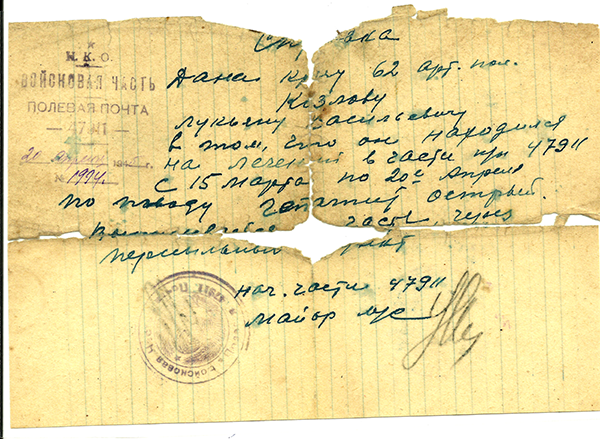 Справка
Н.К.О.
ВОЙСКОВАЯ ЧАСТЬ
ПОЛЕВАЯ ПОЧТА
— 47911 —
20 апреля 194 г.
№ 1994
Дана кр-цу 62 арт. пол.
Козлову
Лукьяну Васильевичу
в том, что он находился
на лечении в части пп 47911
с 15 марта по 20е апреля
по поводу гепатит острый.
часть через
пересыльный пункт
нач. части 47911
майор м/с